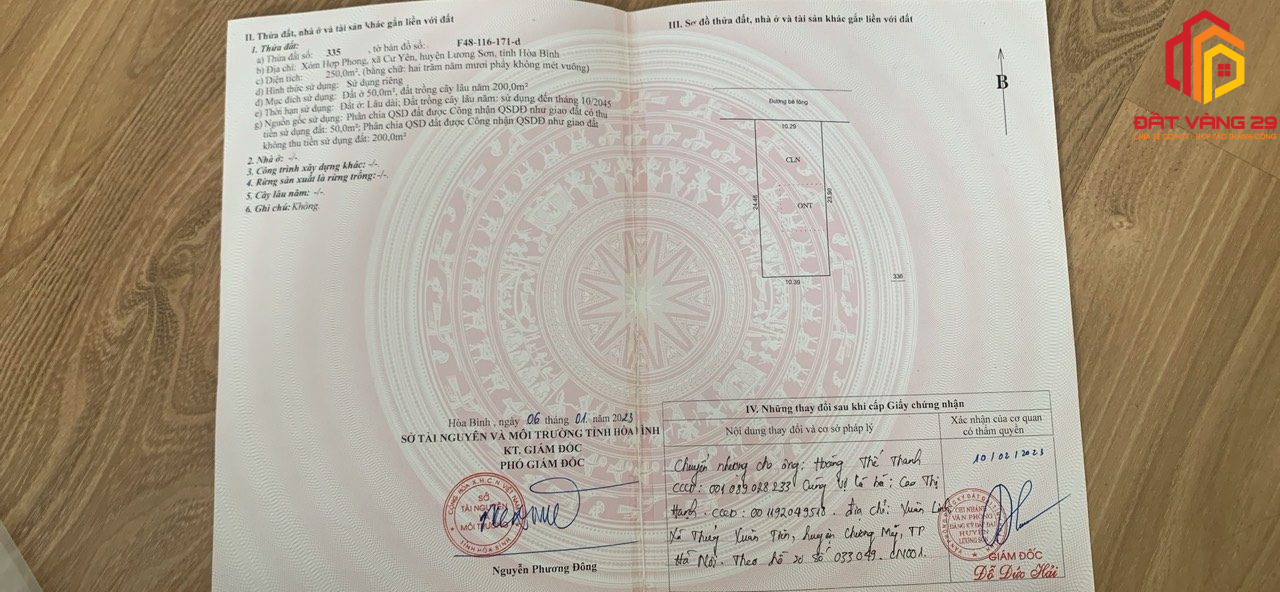 II. Thửa đất, nhà ở và tài sản khác gắn liền với đất
1. Thửa đất:
a) Thửa đất số: 335 , tờ bản đồ số: F48-116-171-d
b) Địa chỉ: Xóm Hợp Phong, xã Cư Yên, huyện Lương Sơn, tỉnh Hòa Bình
c) Diện tích: 250,0m², (bằng chữ: hai trăm năm mươi phảy không mét vuông)
d) Hình thức sử dụng: Sử dụng riêng
đ) Mục đích sử dụng: Đất ở 50,0m², đất trồng cây lâu năm 200,0m²
e) Thời hạn sử dụng: Đất ở: Lâu dài; Đất trồng cây lâu năm: sử dụng đến tháng 10/2045
g) Nguồn gốc sử dụng: Phân chia QSD đất được Công nhận QSDĐ như giao đất có thu
tiền sử dụng đất: 50,0m²; Phân chia QSD đất được Công nhận QSDĐ như giao đất
không thu tiền sử dụng đất: 200,0m²
2. Nhà ở: -/-.
3. Công trình xây dựng khác: -/-.
4. Rừng sản xuất là rừng trồng: -/-.
5. Cây lâu năm: -/-.
6. Ghi chú: Không.
Hòa Bình, ngày 06 tháng 01 năm 2023
SỞ TÀI NGUYÊN VÀ MÔI TRƯỜNG TỈNH HÒA BÌNH
KT. GIÁM ĐỐC
PHÓ GIÁM ĐỐC
SỞ
TÀI NGUYÊN
MÔI TRƯỜNG
Nguyễn Phương Đông
III. Sơ đồ thửa đất, nhà ở và tài sản khác gắn liền với đất
B
Đường bê tông
10.29
CLN
24.46
23.90
ONT
10.39
336
ĐẤT VÀNG 29
IV. Những thay đổi sau khi cấp Giấy chứng nhận
Nội dung thay đổi và cơ sở pháp lý
Xác nhận của cơ quan
có thẩm quyền
Chuyển nhượng cho ông: Hoàng Thế Thanh
CCCD: 001089028233 Cùng vợ là bà: Cao Thị
Hạnh. CCCD: 001192049518. địa chỉ: Xuân Linh
Xã Thủy Xuân Tiên, huyện Chương Mỹ, TP
Hà Nội. Theo hồ sơ số 033049. CN001.
10/02/2023
CHI NHÁNH
VĂN PHÒNG
ĐĂNG KÝ ĐẤT ĐAI
HUYỆN
LƯƠNG SƠN
GIÁM ĐỐC
Đỗ Đức Hải